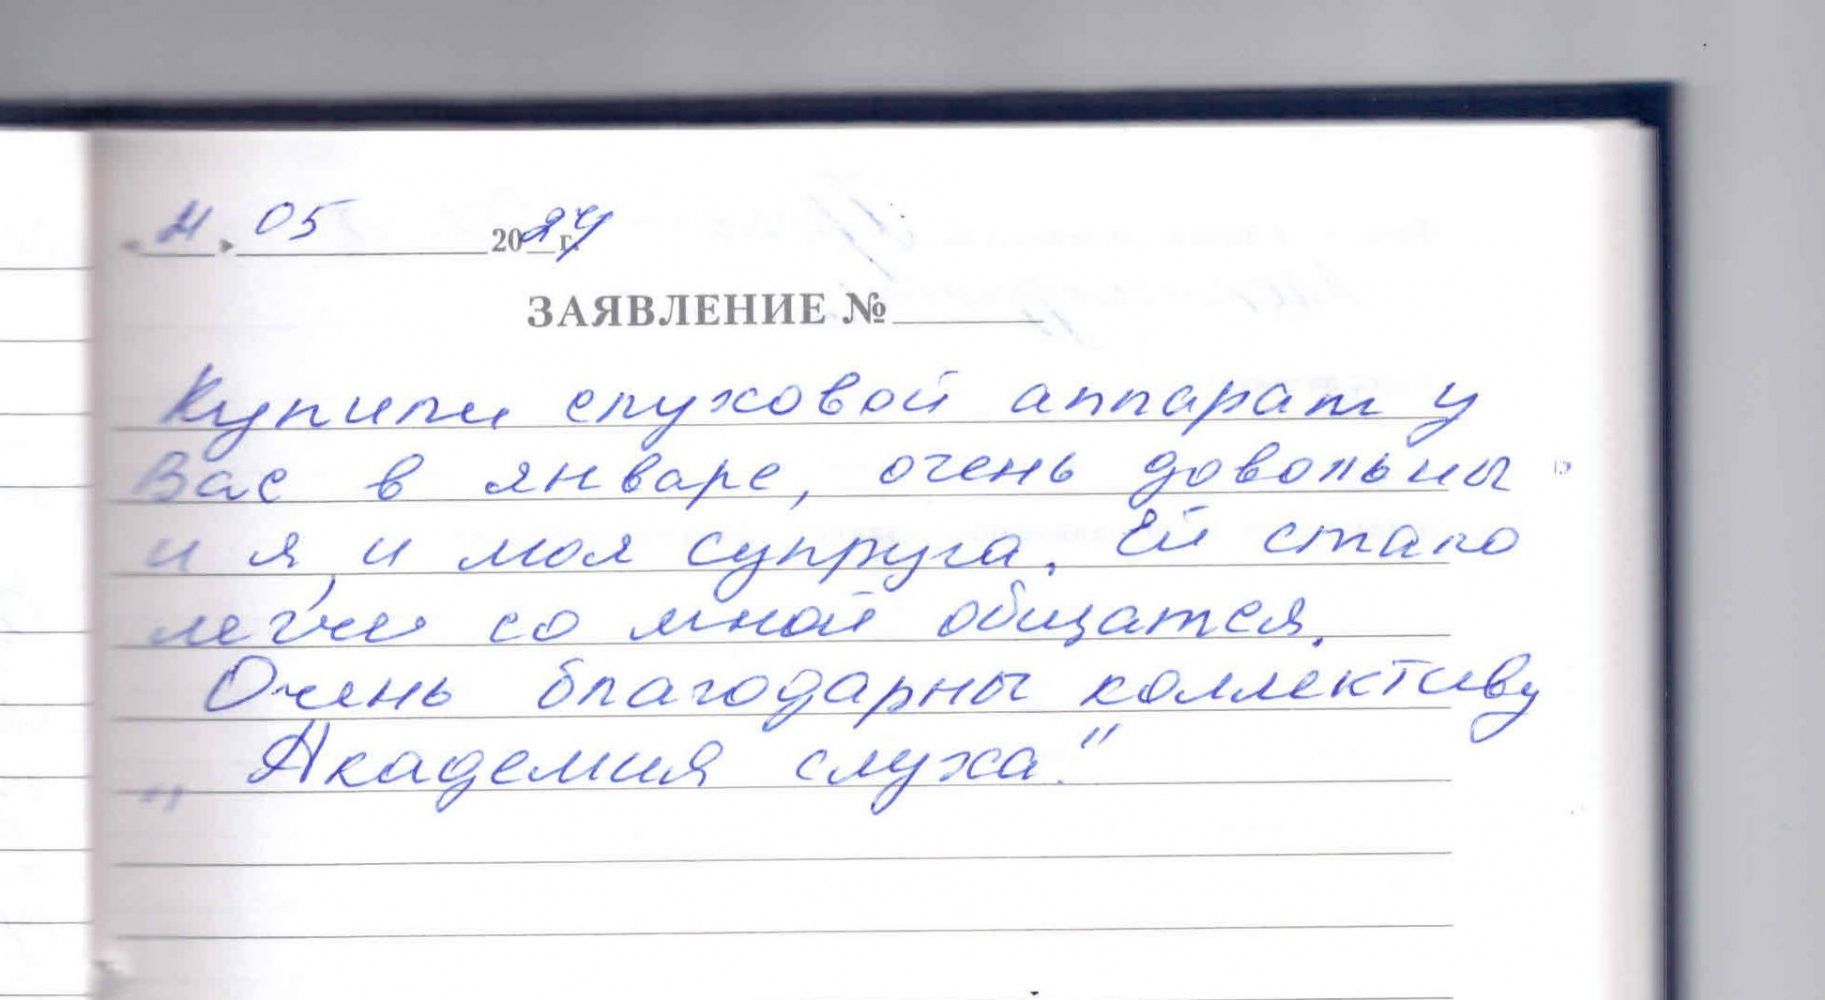 « 21 » 05 2024 г.
ЗАЯВЛЕНИЕ №
Купили слуховой аппарат у
Вас в январе, очень довольны
и я, и моя супруга. Ей стало
легче со мной общатся.
Очень благодарны коллективу
„ Академия слуха."